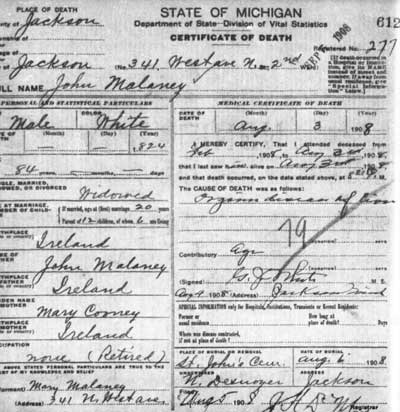 PLACE OF DEATH
STATE OF MICHIGAN
Department of State—Division of Vital Statistics
CERTIFICATE OF DEATH
612
County of Jackson
Registered No. 277
Jackson
No. 341 West ave N. 2nd Ward
FULL NAME John Malaney
PERSONAL AND STATISTICAL PARTICULARS
Male
COLOR
White
DATE OF
(Month) (Day) (Year)
1,824
84 years, months, days
SINGLE, MARRIED,
WIDOWED, OR DIVORCED
Widowed
AGE AT MARRIAGE,
NUMBER OF CHILD-
If married, age at (first) marriage 20 years
Parent of 12 children, of whom 6 are living
BIRTHPLACE
Ireland
NAME OF
FATHER
John Malaney
BIRTHPLACE
OF FATHER
Ireland
MAIDEN NAME
OF MOTHER
Mary Cooney
BIRTHPLACE
OF MOTHER
Ireland
OCCUPATION
none (Retired)
THE ABOVE STATED PERSONAL PARTICULARS ARE TRUE TO THE
BEST OF MY KNOWLEDGE AND BELIEF
(Informant) Mary Malaney
(Address) 341 N. West ave.
MEDICAL CERTIFICATE OF DEATH
DATE OF
DEATH
(Month) (Day) (Year)
Aug. 3 1908
I HEREBY CERTIFY, That I attended deceased from
Feb 1908, to Aug 3rd 1908
that I last saw alive on Aug 3rd 1908
and that death occurred, on the date stated above, at M.
The CAUSE OF DEATH was as follows:
Organic disease of
79
Contributory Age
(Signed) G. J. White M. D.
Aug 4 1908 (Address) Jackson Mich
SPECIAL INFORMATION only for Hospitals, Institutions, Transients or Recent Residents:
Former or
usual residence
How long at
place of death? Days
Where was disease contracted,
if not at place of death?
PLACE OF BURIAL OR REMOVAL
St. John's Cem.
DATE OF BURIAL
Aug. 6, 1908
UNDERTAKER
N. Desnoyer
Jackson
Aug 5 1908
Registrar